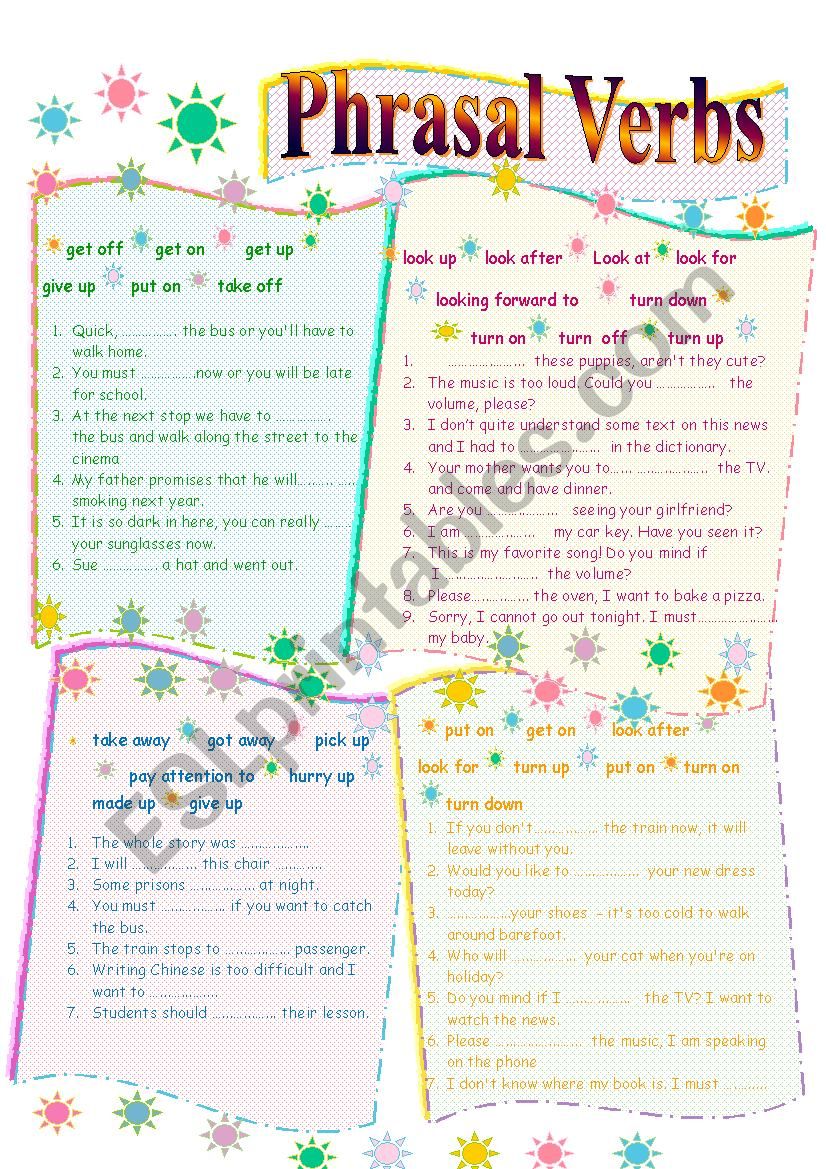 Phrasal Verbs
get off get on get up
give up put on take off
1. Quick, .............. the bus or you'll have to
walk home.
2. You must ...............now or you will be late
for school.
3. At the next stop we have to ..............
the bus and walk along the street to the
cinema
4. My father promises that he will......... .....
smoking next year.
5. It is so dark in here, you can really ........
your sunglasses now.
6. Sue .............. a hat and went out.
look up look after Look at look for
looking forward to turn down
turn on turn off turn up
1. ..................... these puppies, aren't they cute?
2. The music is too loud. Could you ................ the
volume, please?
3. I don't quite understand some text on this news
and I had to ...................... in the dictionary.
4. Your mother wants you to...... ................... the TV.
and come and have dinner.
5. Are you .................... seeing your girlfriend?
6. I am ................... my car key. Have you seen it?
7. This is my favorite song! Do you mind if
I .......................... the volume?
8. Please............... the oven, I want to bake a pizza.
9. Sorry, I cannot go out tonight. I must......................
my baby.
take away got away pick up
pay attention to hurry up
made up give up
1. The whole story was ..................
2. I will ................. this chair ............
3. Some prisons ................. at night.
4. You must ................. if you want to catch
the bus.
5. The train stops to ................. passenger.
6. Writing Chinese is too difficult and I
want to ..................
7. Students should ................. their lesson.
put on get on look after
look for turn up put on turn on
turn down
1. If you don't................. the train now, it will
leave without you.
2. Would you like to ................. your new dress
today?
3. .................your shoes - it's too cold to walk
around barefoot.
4. Who will ................. your cat when you're on
holiday?
5. Do you mind if I ................. the TV? I want to
watch the news.
6. Please ....................... the music, I am speaking
on the phone
7. I don't know where my book is. I must ............
ESLprintables.com